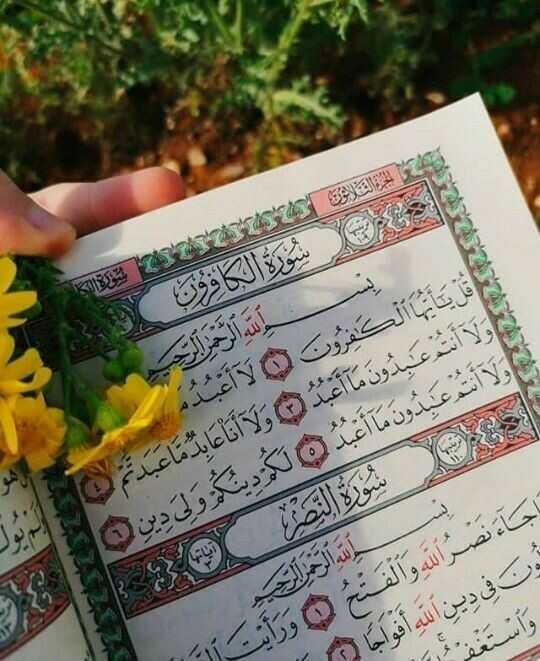 الجزء الثلاثون
سورة الكافرون
سورة الكافرون
بِسْمِ ٱللَّهِ ٱلرَّحْمَٰنِ ٱلرَّحِيمِ
قُلْ يَٰٓأَيُّهَا ٱلْكَٰفِرُونَ ١ لَآ أَعْبُدُ
وَلَآ أَنتُمْ عَٰبِدُونَ مَآ أَعْبُدُ ٣ وَلَآ أَنَا۠ عَابِدٌ مَّا عَبَدتُّمْ ٤
وَلَآ أَنتُمْ عَٰبِدُونَ مَآ أَعْبُدُ ٥ لَكُمْ دِينُكُمْ وَلِىَ دِينِ ٦
سورة النصر
آياتها
بِسْمِ ٱللَّهِ ٱلرَّحْمَٰنِ ٱلرَّحِيمِ
جَآءَ نَصْرُ ٱللَّهِ وَٱلْفَتْحُ ١ وَرَأَيْتَ
فِى دِينِ ٱللَّهِ أَفْوَاجًا ٢